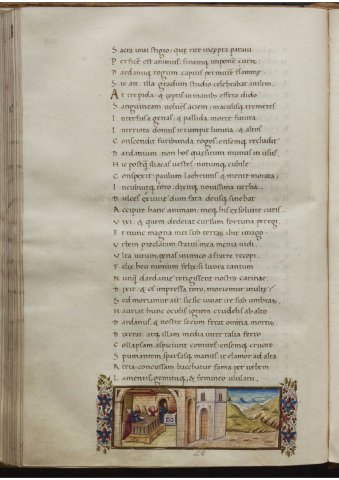 Sacra iovi stygio, que rite incepta paravi
Perficere est animus: finemq imponere curis:
Dardaniiq rogum capitis permittere flamme
Sic ait. illa gradum studio celebrabat anilem.
At trepida, & ceptis immanibus effera dido
Sanguineam volvens aciem, maculisq trementes
Interfusa genas, & pallida morte futura
Interiora domus irrumpit limina, & altos
Conscendit furibunda rogos: ensemq recludit
Dardanium non hos quesitum munus in usus
Hic postq iliacas vestes, notumq cubile
Conspexit: paulum lachrimis, & mente morata
Incubuitq toro. dixitq novissima verba.
Dulces exuvie dum fata deusq sinebat
Accipite hanc animam. meq his exsolvite curis:
Vixi: & quem dederat cursum fortuna peregi
Et nunc magna mei sub terras ibit imago
Vrbem preclaram statui. mea menia vidi.
Vlta virum penas inimico a fratre recepi.
Felix heu nimium felix si litora tantum
Nunq dardanie tetigissent nostra carinae
Dixit: & os impressa toro, moriemur inulte
Sed moriamur ait. sic sic iuvat ire sub umbras.
Hauriat hunc oculis ignem crudelis ab alto
Dardanus, & nostre secum ferat omina mortis.
Dixerat. atq illam media inter talia ferro
Collapsam aspiciunt comites: ensemq cruore
Spumantem. sparsasq manus. it clamor ad alta
Atria: concussam bacchatur fama per urbem
Lamentis, gemituq, & femineo ululatu.